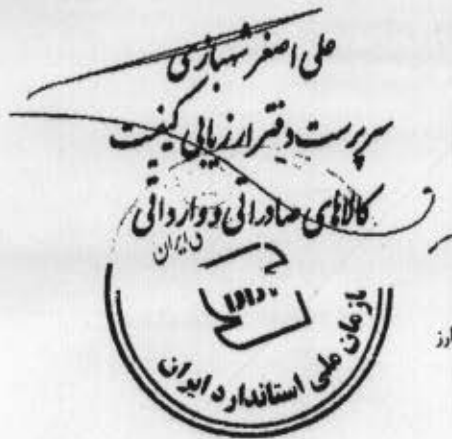 علی اصغر شهبازی
سرپرست دفتر ارزیابی کیفیت
کالاهای صادراتی و وارداتی
سازمان ملی استاندارد ایران